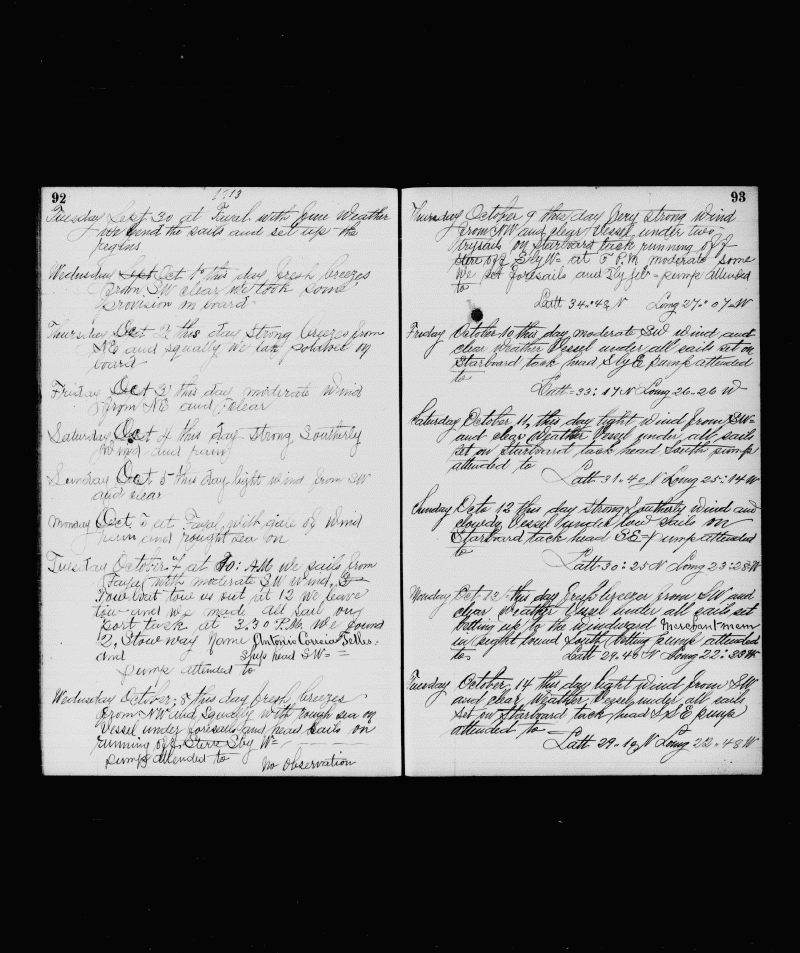 92
1913
Tuesday Sept 30 at Fayal with fine Weather
we bend the sails and set up the
regins
Wednesday Oct 1 this day fresh breezes
from SW clear we took some
provision on board
Thursday Oct 2 this day strong breezes from
NE and squally we tak on
board
Friday Oct 3 this day moderate wind
from NE and clear
Saturday Oct 4 this day strong Southerly
wind and rain
Sunday Oct 5 this day light wind from SW
and clear
Monday Oct at Fayal with gale of wind
and rought sea on
Tuesday October 7 at 10: AM we sails from
Fayal with moderate SW wind,
Tow boat tow us out at 12 we leave
tow and we made all sail on
port tack at 3.30 P.M. We found
2, Stow way name Antonio Correia Telles
and Ships head SW
pump attended to
Wednesday October, 8 this day fresh breezes
from NW and squally with rough sea on
Vessel under foresails and head sails on
running off S by W
pumps attended to No Observation
93
Thursday October 9 this day very strong wind
from NW and clear Vessel under two
trysails on starboard tack running off
S by W at P.M moderate some
We set foresails and Fly jib pump attended
to
Latt 34:43 N Long 27:07 W
Friday October 10 this day moderate SW wind and
clear weather Vessel under all sails set on
Starboard tack head S by E pump attended
to
Latt 33:17 N Long 26-26 W
Saturday October 11, this day light wind from SW
and clear weather Vessel under all sails
set on Starboard tack head South pump
attended to
Latt 31-40 N Long 25:14 W
Sunday Octo 12 this day strong Southerly wind and
cloudy Vessel under low sails on
Starboard tack head SE pump attended
to
Latt 30:25 N Long 23:28 W
Monday Oct 13 this day fresh breezes from SW and
clear Weather Vessel under all sails set
up to the windward Merchant mem
in sight bound South pump attended
to Latt 29.40 N Long 22:38 W
Tuesday October 14 this day light wind from SW
and clear Weather Vessel under all sails
set on Starboard tack head S E pump
attended to
Latt 29-19 N Long 22-48 W